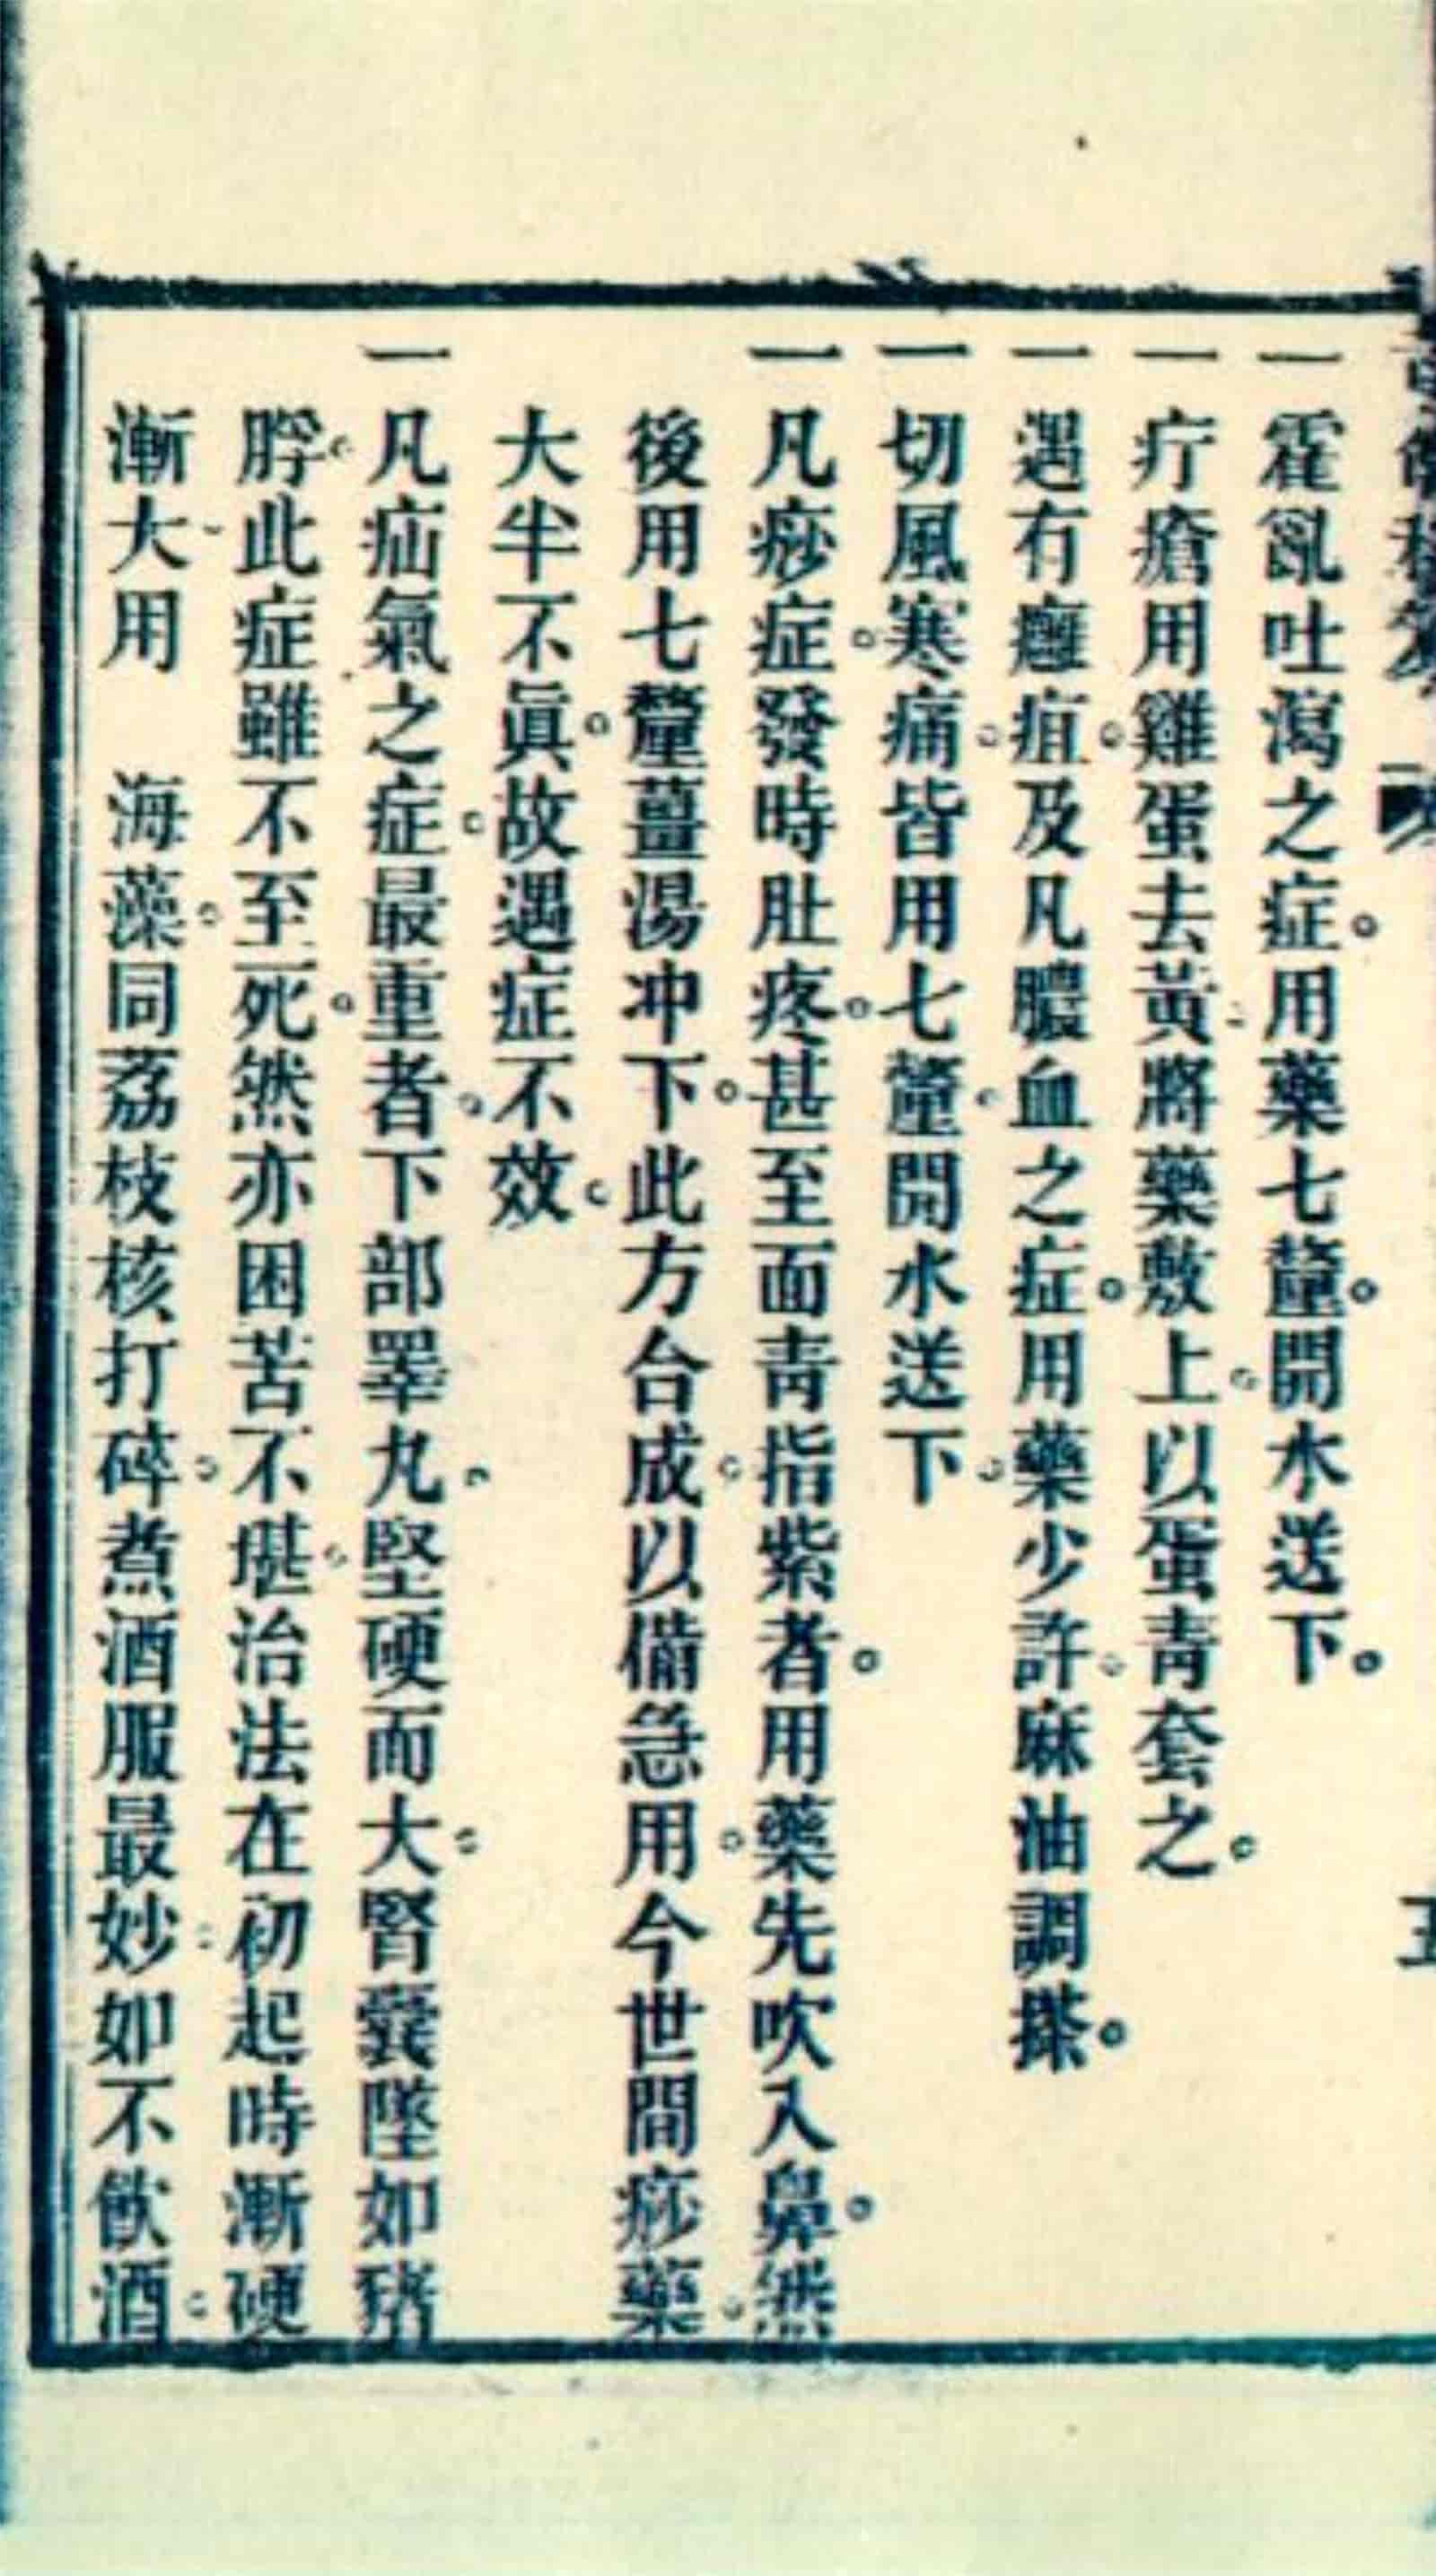 一霍亂吐瀉之症。用藥七釐。開水送下。
一疔瘡用雞蛋去黃。將藥敷上。以蛋青套之。
一遇有癰疽。及凡膿血之症。用藥少許。麻油調搽。
一切風寒痛。皆用七釐。開水送下。
一凡痧症。發時肚疼。甚至面青指紫者。用藥先吹入鼻。然
後用七釐薑湯冲下。此方合成。以備急用。今世間痧藥。
大半不眞。故遇症不效。
一凡疝氣之症。最重者。下部睪丸。堅硬而大。腎囊墜如猪
脬。此症雖不至死。然亦困苦不堪。治法在初起時漸硬
漸大用 海藻。同荔枝核打碎。煮酒服最妙。如不飲酒。